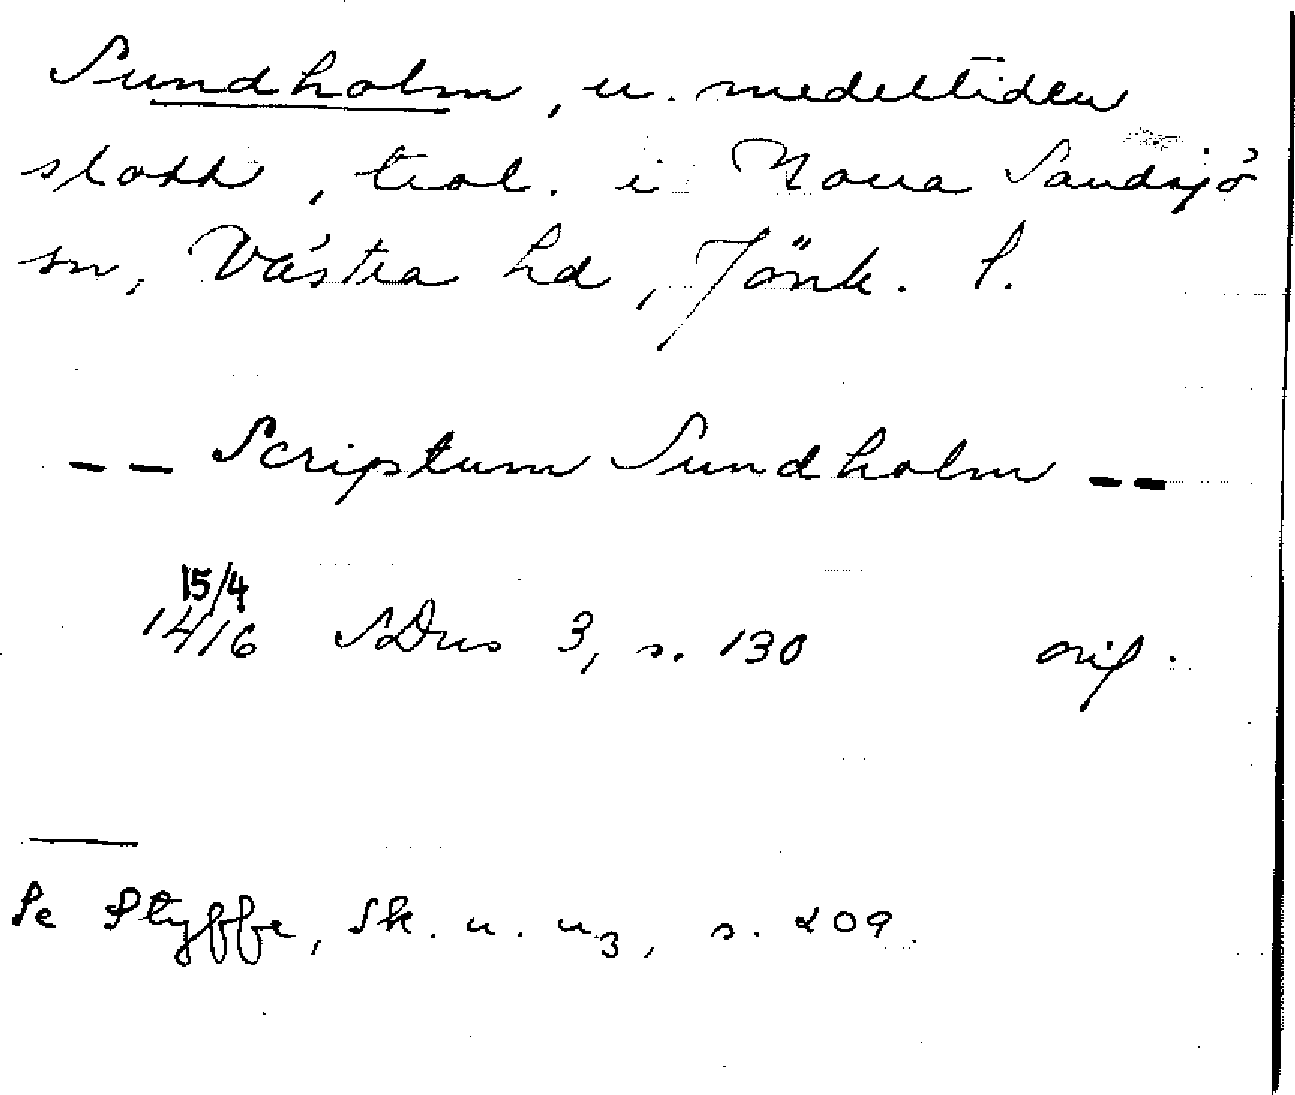 Sundholm, u. medeltiden
slott, trol. i Norra Sandsjö
sn, Västra hd, Jönk. l.
-- Scriptum Sundholm --
15/4
1416 SDns 3, s. 130 orig.
Se Styffe, Sk. u. u3, s. 209